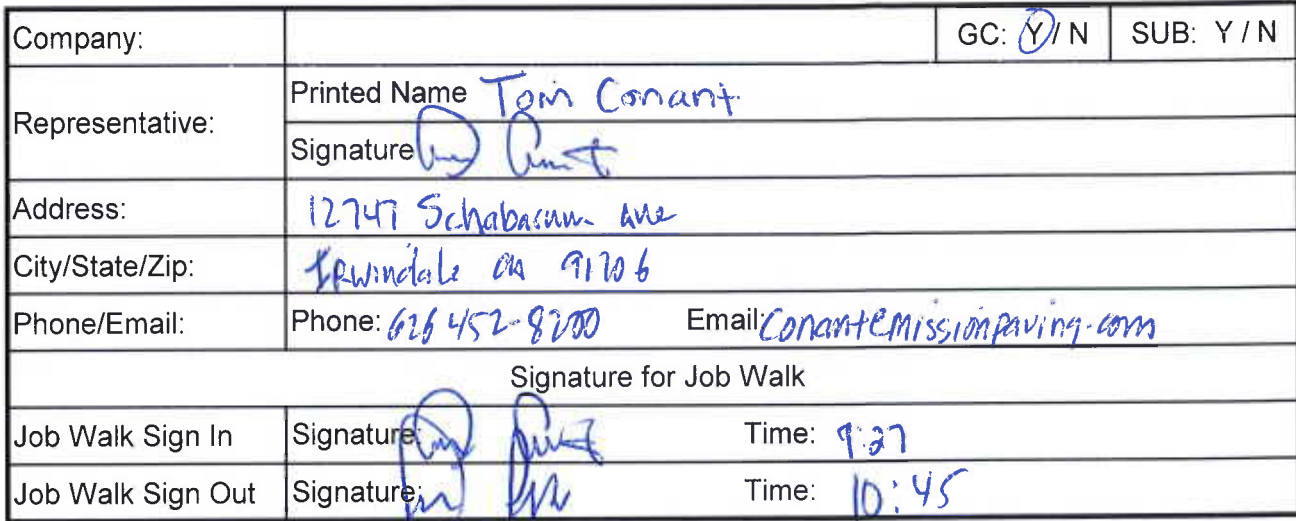 Company: GC: Y / N SUB: Y / N
Representative: Printed Name Tom Conant
Signature
Address: 12747 Schabarum Ave
City/State/Zip: Irwindale CA 91706
Phone/Email: Phone: 626 452-8200 Email: Conant@missionpaving.com
Signature for Job Walk
Job Walk Sign In Signature: Time: 9:27
Job Walk Sign Out Signature: Time: 10:45